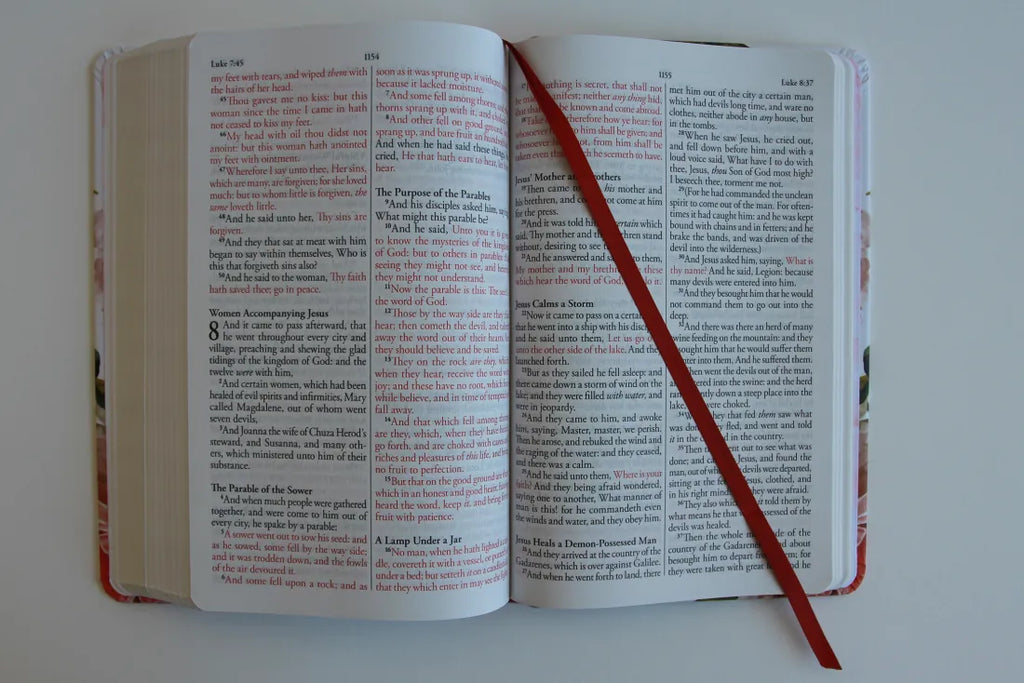 Luke 7:45
1154
my feet with tears, and wiped them with
the hairs of her head.
45Thou gavest me no kiss: but this
woman since the time I came in hath
not ceased to kiss my feet.
46My head with oil thou didst not
anoint: but this woman hath anointed
my feet with ointment.
47Wherefore I say unto thee, Her sins,
which are many, are forgiven; for she loved
much: but to whom little is forgiven, the
same loveth little.
48And he said unto her, Thy sins are
forgiven.
49And they that sat at meat with him
began to say within themselves, Who is
this that forgiveth sins also?
50And he said to the woman, Thy faith
hath saved thee; go in peace.
Women Accompanying Jesus
8 And it came to pass afterward, that
he went throughout every city and
village, preaching and shewing the glad
tidings of the kingdom of God: and the
twelve were with him,
2And certain women, which had been
healed of evil spirits and infirmities, Mary
called Magdalene, out of whom went
seven devils,
3And Joanna the wife of Chuza Herod's
steward, and Susanna, and many oth-
ers, which ministered unto him of their
substance.
The Parable of the Sower
4And when much people were gathered
together, and were come to him out of
every city, he spake by a parable:
5A sower went out to sow his seed: and
as he sowed, some fell by the way side;
and it was trodden down, and the fowls
of the air devoured it.
6And some fell upon a rock; and as
soon as it was sprung up, it withered
because it lacked moisture.
7And some fell among thorns; and
thorns sprang up with it, and
8And other fell on good ground,
sprang up, and bare fruit an
And when he had said these things
cried, He that hath ears to hear, let
hear.
The Purpose of the Parables
9And his disciples asked him,
What might this parable be?
10And he said, Unto you it is
to know the mysteries of the
of God: but to others in parables
seeing they might not see, and
they might not understand.
11Now the parable is this: The
the word of God.
12Those by the way side are they
hear; then cometh the devil, and
away the word out of their hearts,
they should believe and be saved.
13They on the rock are they,
when they hear, receive the word
joy; and these have no root, which
while believe, and in time of
fall away.
14And that which fell among
are they, which, when they have
go forth, and are choked with
riches and pleasures of this life, and
no fruit to perfection.
15But that on the good ground are
which in an honest and good heart,
heard the word, keep it, and bring
fruit with patience.
A Lamp Under a Jar
16No man, when he hath lighted a
dle, covereth it with a vessel, or
under a bed; but setteth it on a
that they which enter in may see the
1155
Luke 8:37
nothing is secret, that shall not
be made manifest; neither any thing hid,
that shall be known and come abroad.
18Take therefore how ye hear: for
whosoever to him shall be given; and
whosoever not, from him shall be
taken even that which he seemeth to have.
Jesus' Mother and Brothers
19Then came to his mother and
his brethren, and could not come at him
for the press.
20And it was told him certain which
said, Thy mother and thy brethren stand
without, desiring to see
21And he answered and said unto them,
My mother and my brethren are these
which hear the word of God, and do it.
Jesus Calms a Storm
22Now it came to pass on a certain
that he went into a ship with his
and he said unto them, Let us go
unto the other side of the lake. And they
launched forth.
23But as they sailed he fell asleep: and
there came down a storm of wind on the
lake; and they were filled with water, and
were in jeopardy.
24And they came to him, and awoke
him, saying, Master, master, we perish.
Then he arose, and rebuked the wind and
the raging of the water: and they ceased,
and there was a calm.
25And he said unto them, Where is your
faith? And they being afraid wondered,
saying one to another, What manner of
man is this! for he commandeth even
the winds and water, and they obey him.
Jesus Heals a Demon-Possessed Man
26And they arrived at the country of the
Gadarenes, which is over against Galilee.
27And when he went forth to land, there
met him out of the city a certain man,
which had devils long time, and ware no
clothes, neither abode in any house, but
in the tombs.
28When he saw Jesus, he cried out,
and fell down before him, and with a
loud voice said, What have I to do with
thee, Jesus, thou Son of God most high?
I beseech thee, torment me not.
29(For he had commanded the unclean
spirit to come out of the man. For often-
times it had caught him: and he was kept
bound with chains and in fetters; and he
brake the bands, and was driven of the
devil into the wilderness.)
30And Jesus asked him, saying, What is
thy name? And he said, Legion: because
many devils were entered into him.
31And they besought him that he would
not command them to go out into the
deep.
32And there was there an herd of many
swine feeding on the mountain: and they
besought him that he would suffer them
to enter into them. And he suffered them.
33Then went the devils out of the man,
and entered into the swine: and the herd
ran violently down a steep place into the
lake, and were choked.
34When they that fed them saw what
was done, they fled, and went and told
it in the city and in the country.
35Then they went out to see what was
done; and came to Jesus, and found the
man, out of whom the devils were departed,
sitting at the feet of Jesus, clothed, and
in his right mind: and they were afraid.
36They also which saw it told them by
what means he that was possessed of the
devils was healed.
37Then the whole multitude of the
country of the Gadarenes round about
besought him to depart from them; for
they were taken with great fear: and he